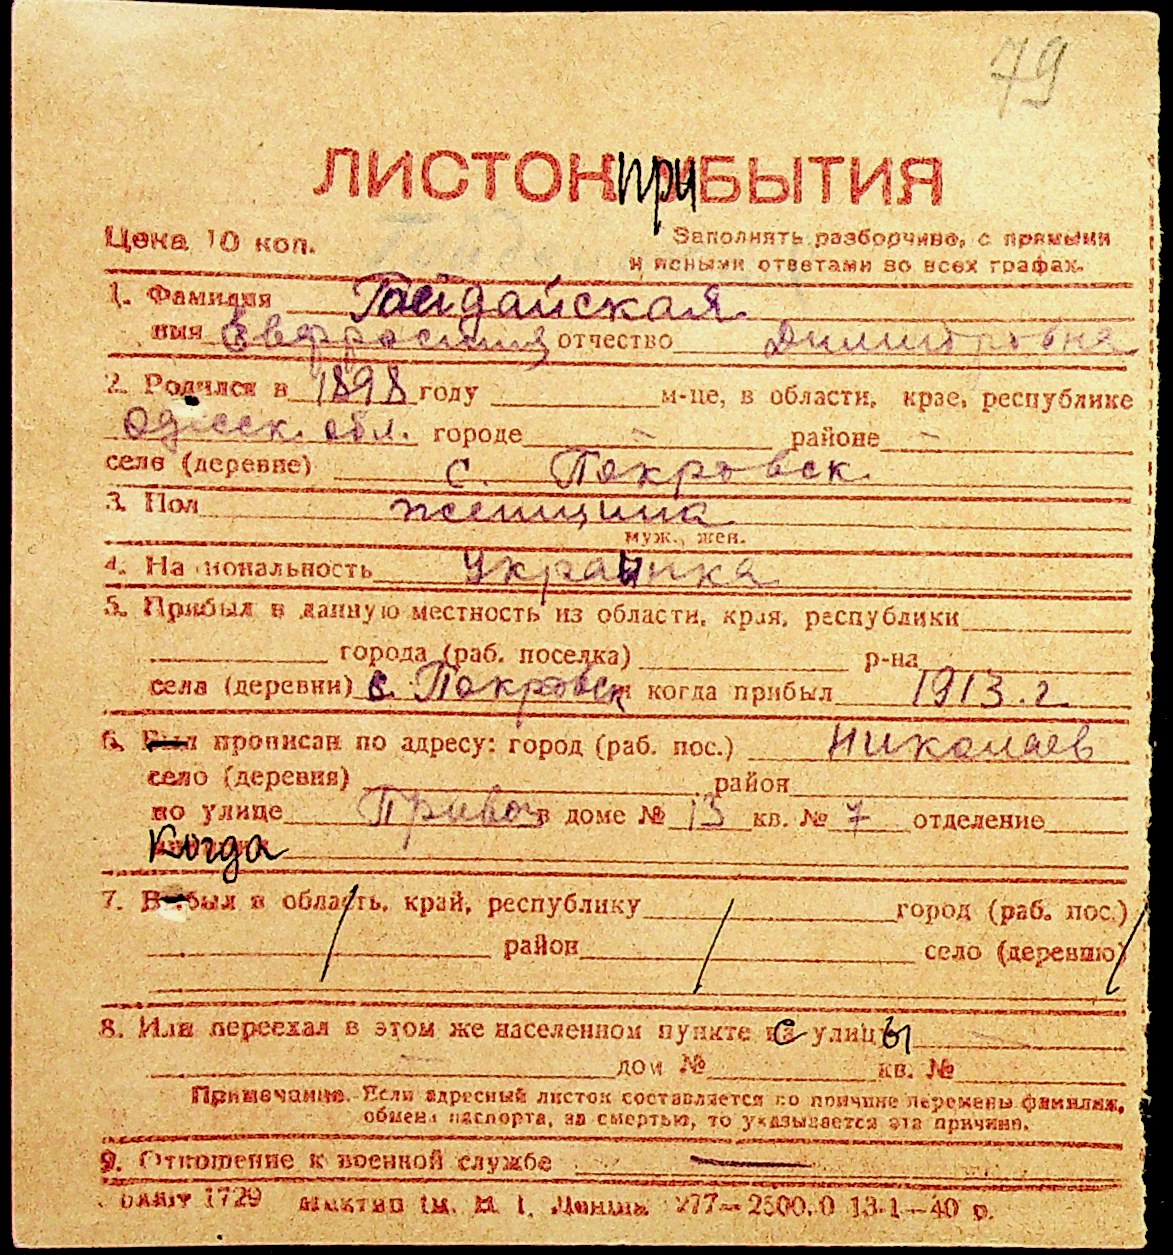 79
ЛИСТОК ПРИБЫТИЯ
Цена 10 коп.
Заполнять разборчиво, с прямыми
и ясными ответами во всех графах.
1. Фамилия Гайдайская
имя Евфросиния отчество Димитровна
2. Родился в 1898 году м-це, в области, крае, республике
Одесск. обл. городе - районе -
селе (деревне) с. Покровск
3. Пол женщина
муж., жен.
4. Национальность украинка
5. Прибыл в данную местность из области, края, республики
города (раб. поселка) р-на
села (деревни) с. Покровск и когда прибыл 1913 г.
6. прописан по адресу: город (раб. пос.) Николаев
село (деревня) район
по улице в доме № 13 кв. № 7 отделение
Когда
7. Выбыл в область, край, республику город (раб. пос.)
район село (деревню)
8. Или переехал в этом же населенном пункте с улицы -
- дом № кв. №
Примечание. Если адресный листок составляется по причине перемены фамилии,
обмена паспорта, за смертью, то указывается эта причина.
9. Отношение к военной службе —
1729 ім. 277—2500.0 13-1—40 р.